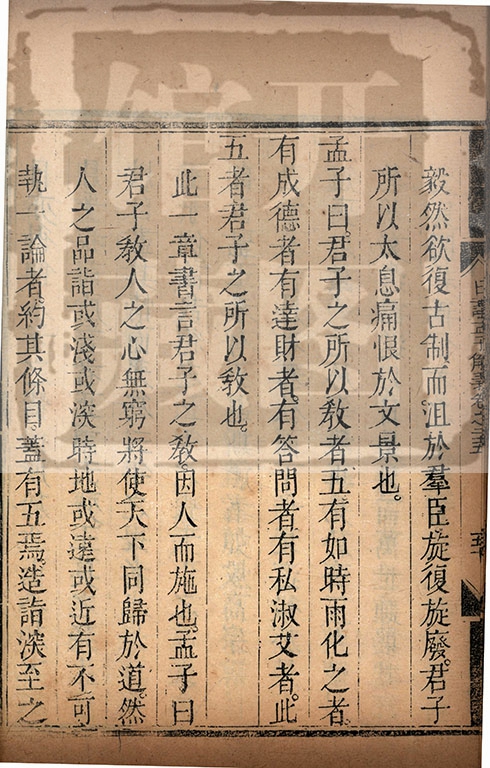 毅然欲復古制而沮於羣臣旋復旋廢君子
所以太息痛恨於文景也
孟子曰君子之所以敎者五有如時雨化之者
有成德者有達財者有答問者有私淑艾者此
五者君子之所以敎也
此一章書言君子之敎因人而施也孟子曰
君子敎人之心無窮將使天下同歸於道然
人之品詣或淺或深時地或遠或近有不可
執一論者約其條目蓋有五焉造詣深至之
日講孟子解義卷之